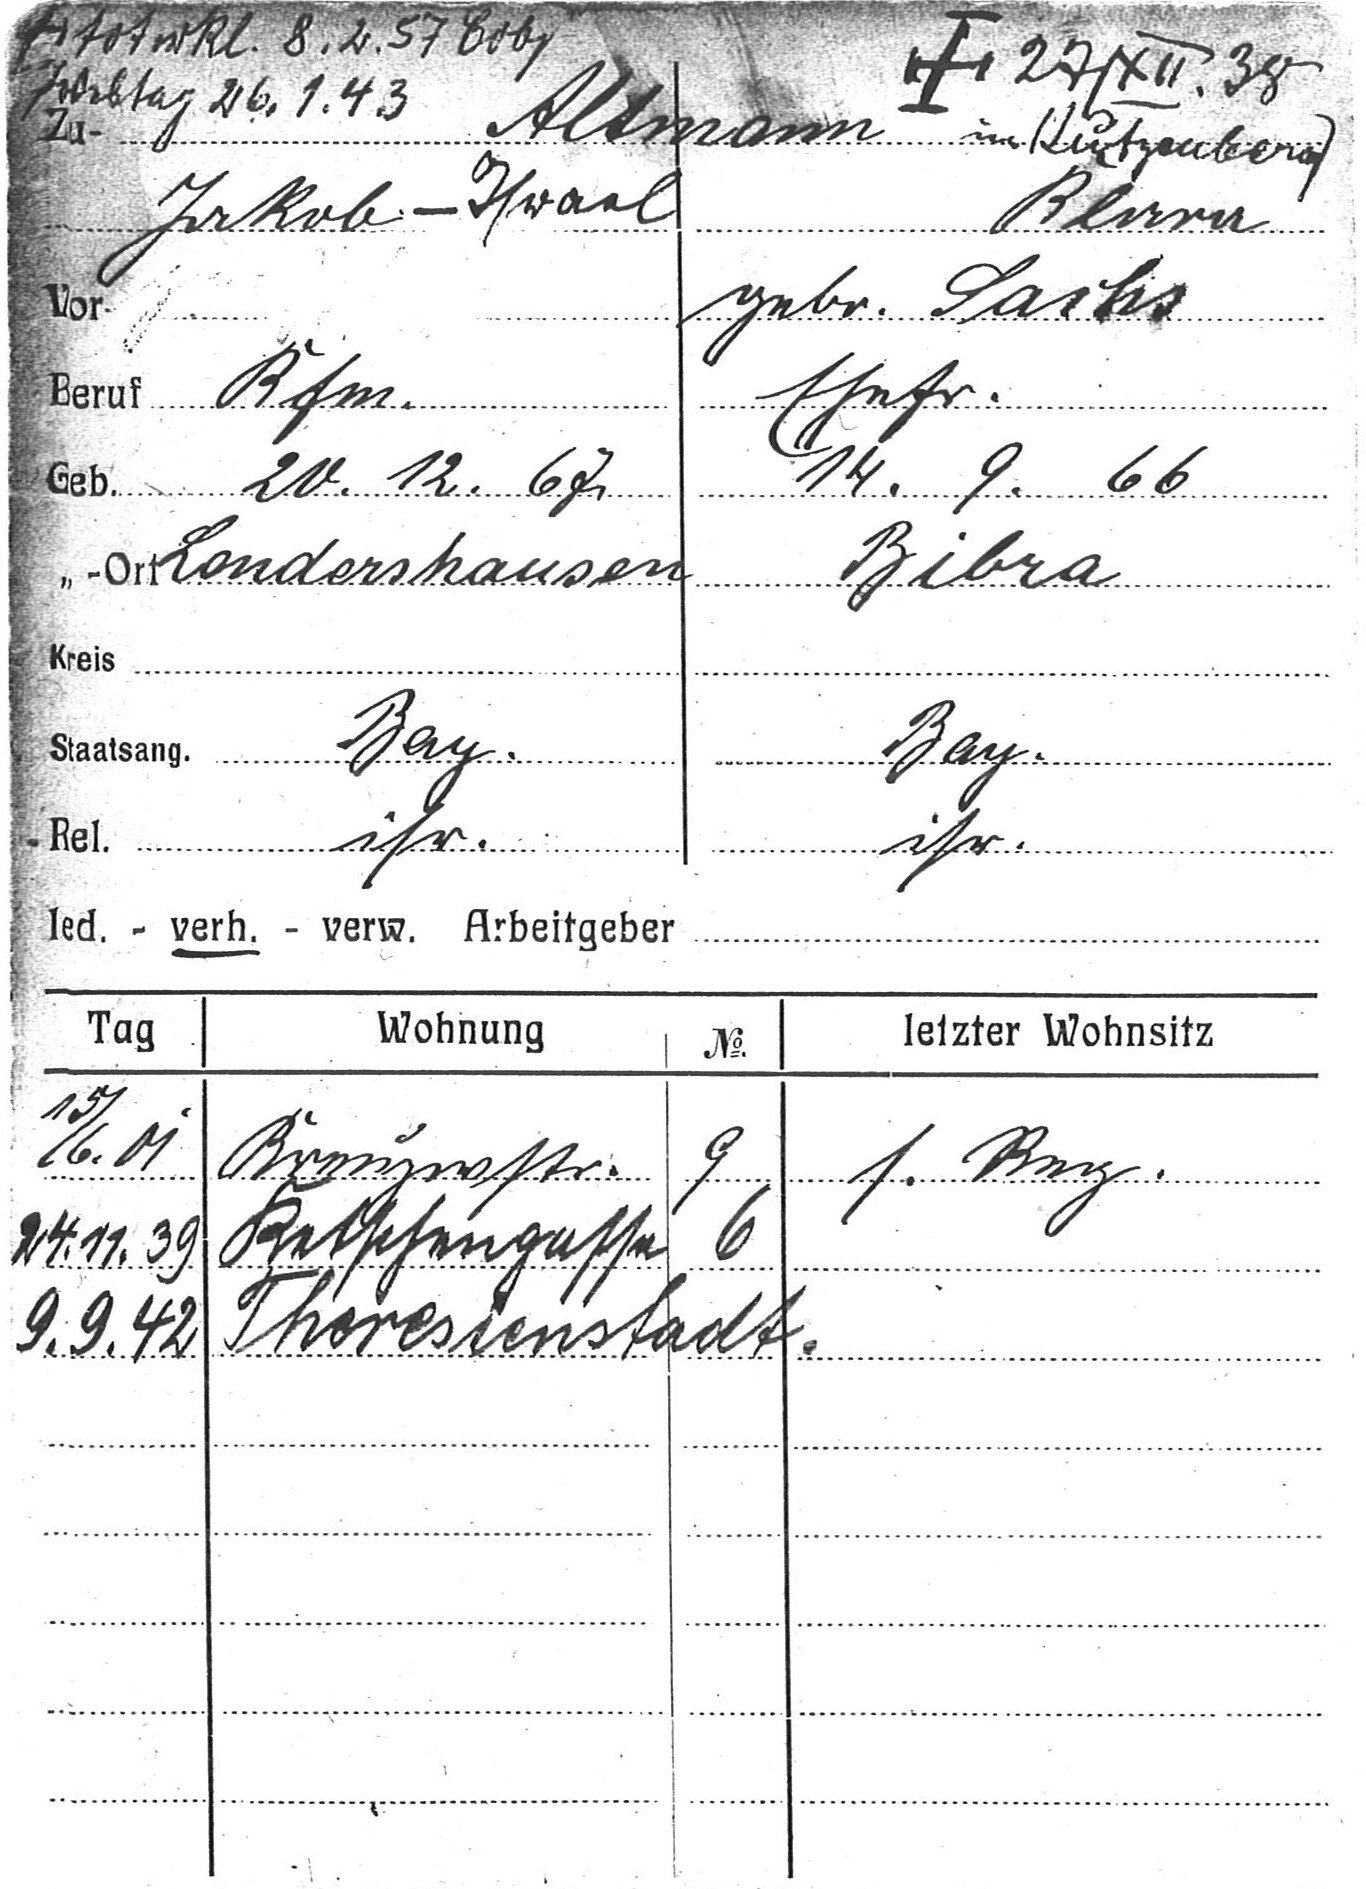 † toterkl. 8.2.57 Cobg
Todestag 26.1.43
† 27/XII. 38
Zu- Altmann in Kutzenberg
Jakob - Israel Klara
Vor- gebr. Sachs
Beruf Kfm. Ehefr.
Geb. 20. 12. 67. 14. 9. 66
„ -Ort Londershausen Bibra
Kreis
Staatsang. Bay. Bay.
Rel. isr. isr.
led. - verh. - verw. Arbeitgeber
Tag Wohnung No. letzter Wohnsitz
15/6. 01 Kreuzwstr. 9 s. Reg.
24.11.39 Ketschengasse 6
9.9.42 Theresienstadt.